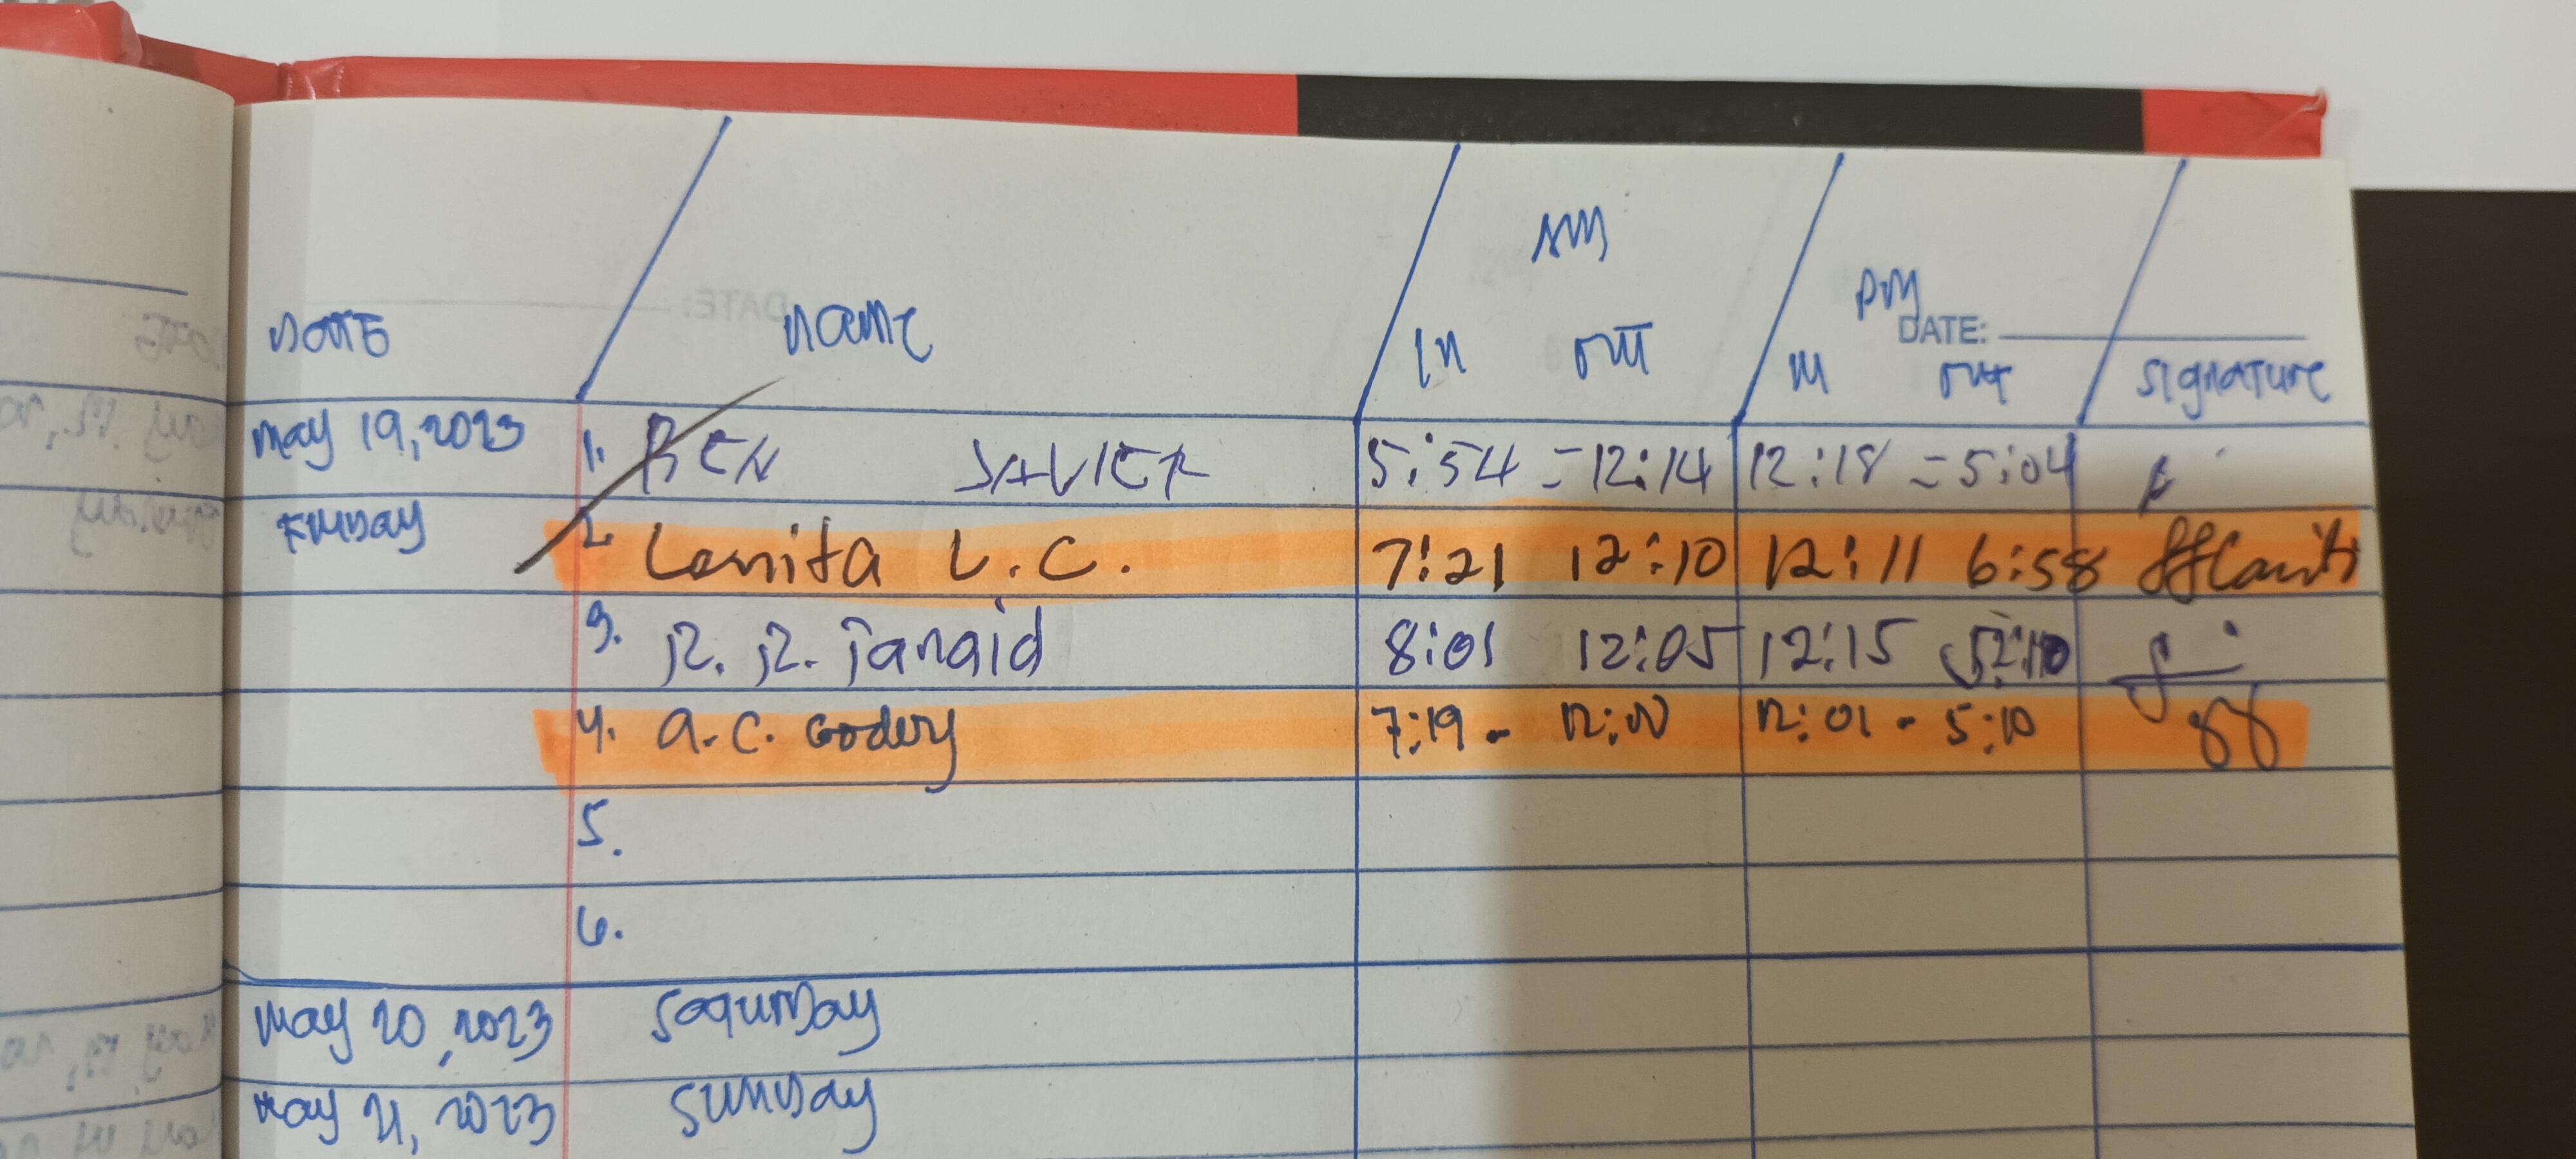 AM
PM
DATE:
DATE NAME IN OUT IN OUT SIGNATURE
May 19, 2023 1. BEN JAVIER 5:54 = 12:14 12:18 = 5:04
FRIDAY 2. Lanita L.C. 7:21 12:10 12:11 6:58
3. R. R. 8:01 12:05 12:15
4. a.c. Godoy 7:19 - 12:00 12:01 - 5:10
5.
6.
May 20, 2023 Saturday
May 21, 2023 Sunday